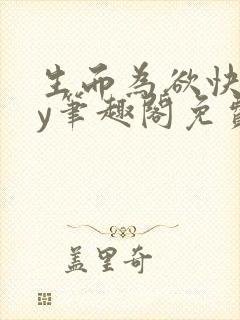 生而为欲快
y笔趣阁免
盖里奇